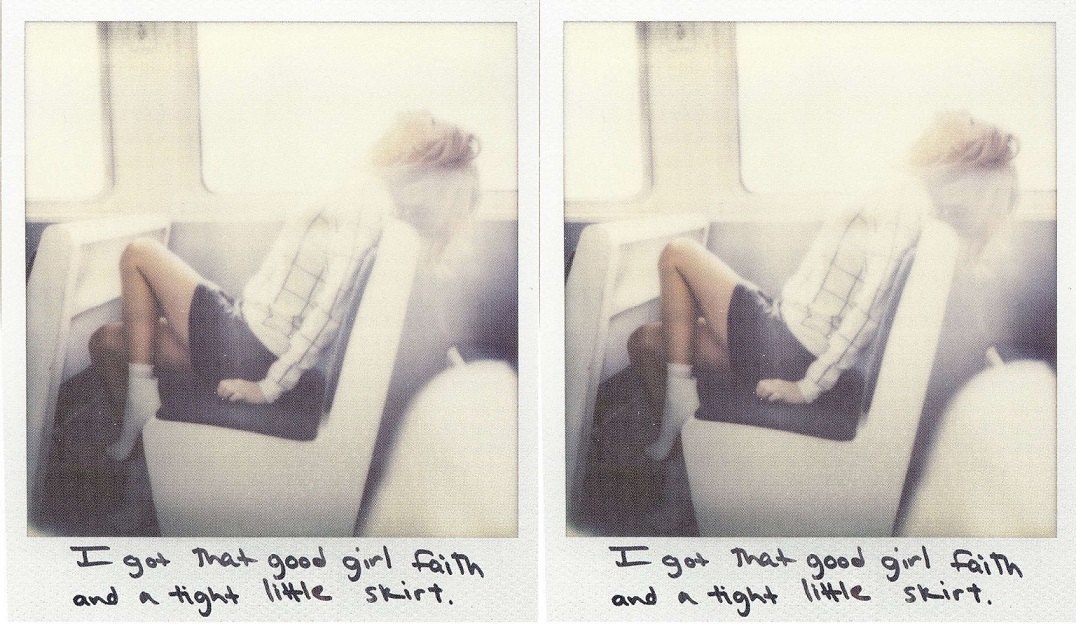 I got that good girl faith
and a tight little skirt.
I got that good girl faith
and a tight little skirt.